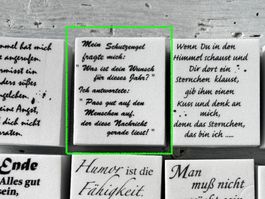 mmel hat mich
angerufen.
ein
ders
Mein Schutzengel
fragte mich:
"Was ist dein Wunsch
für dieses Jahr?"
Ich antwortete:
"Pass gut auf den
Menschen auf,
der diese Nachricht
gerade liest!"
Wenn Du in den
Himmel schaust und
Dir dort ein
Sternchen klaust,
gib ihm einen
Kuss und denk an
mich,
denn das Sternchen,
das bin ich .....
Ende
Alles gut
sein,
Humor ist die
Fähigkeit,
Man
muß nicht